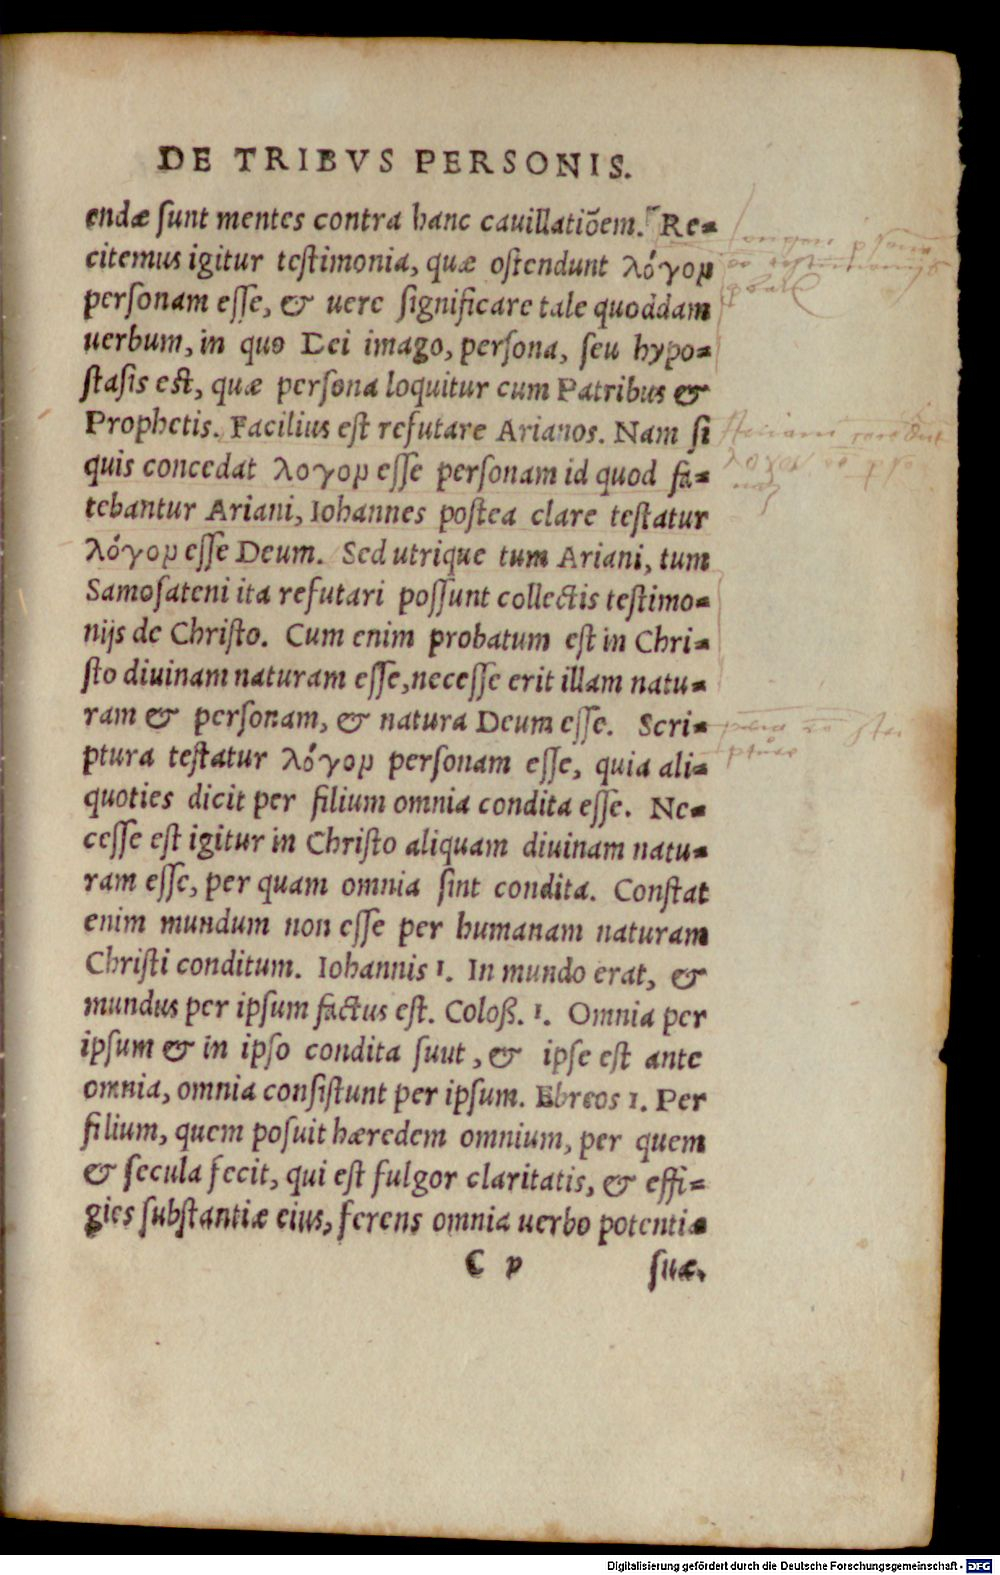 DE TRIBVS PERSONIS.
endæ sunt mentes contra hanc cauillatiõem. Re=
citemus igitur testimonia, quæ ostendunt λόγομ
personam esse, & uere significare tale quoddam
uerbum, in quo Dei imago, persona, seu hypo=
stasis est, quæ persona loquitur cum Patribus &
Prophetis. Facilius est refutare Arianos. Nam si
quis concedat λογομ esse personam id quod fa=
tebantur Ariani, Iohannes postea clare testatur
λόγομ esse Deum. Sed utrique tum Ariani, tum
Samosateni ita refutari possunt collectis testimo=
nijs de Christo. Cum enim probatum est in Chri=
sto diuinam naturam esse, necesse erit illam natu=
ram & personam, & natura Deum esse. Scri=
ptura testatur λόγομ personam esse, quia ali=
quoties dicit per filium omnia condita esse. Ne=
cesse est igitur in Christo aliquam diuinam natu=
ram esse, per quam omnia sint condita. Constat
enim mundum non esse per humanam naturam
Christi conditum. Iohannis 1. In mundo erat, &
mundus per ipsum factus est. Coloß. 1. Omnia per
ipsum & in ipso condita suut, & ipse est ante
omnia, omnia consistunt per ipsum. Ebreos 1. Per
filium, quem posuit hæredem omnium, per quem
& secula fecit, qui est fulgor claritatis, & effi=
gies substantiæ eius, ferens omnia uerbo potentiæ
C p suæ.
λογον
Digitalisierung gefördert durch die Deutsche Forschungsgemeinschaft - DFG